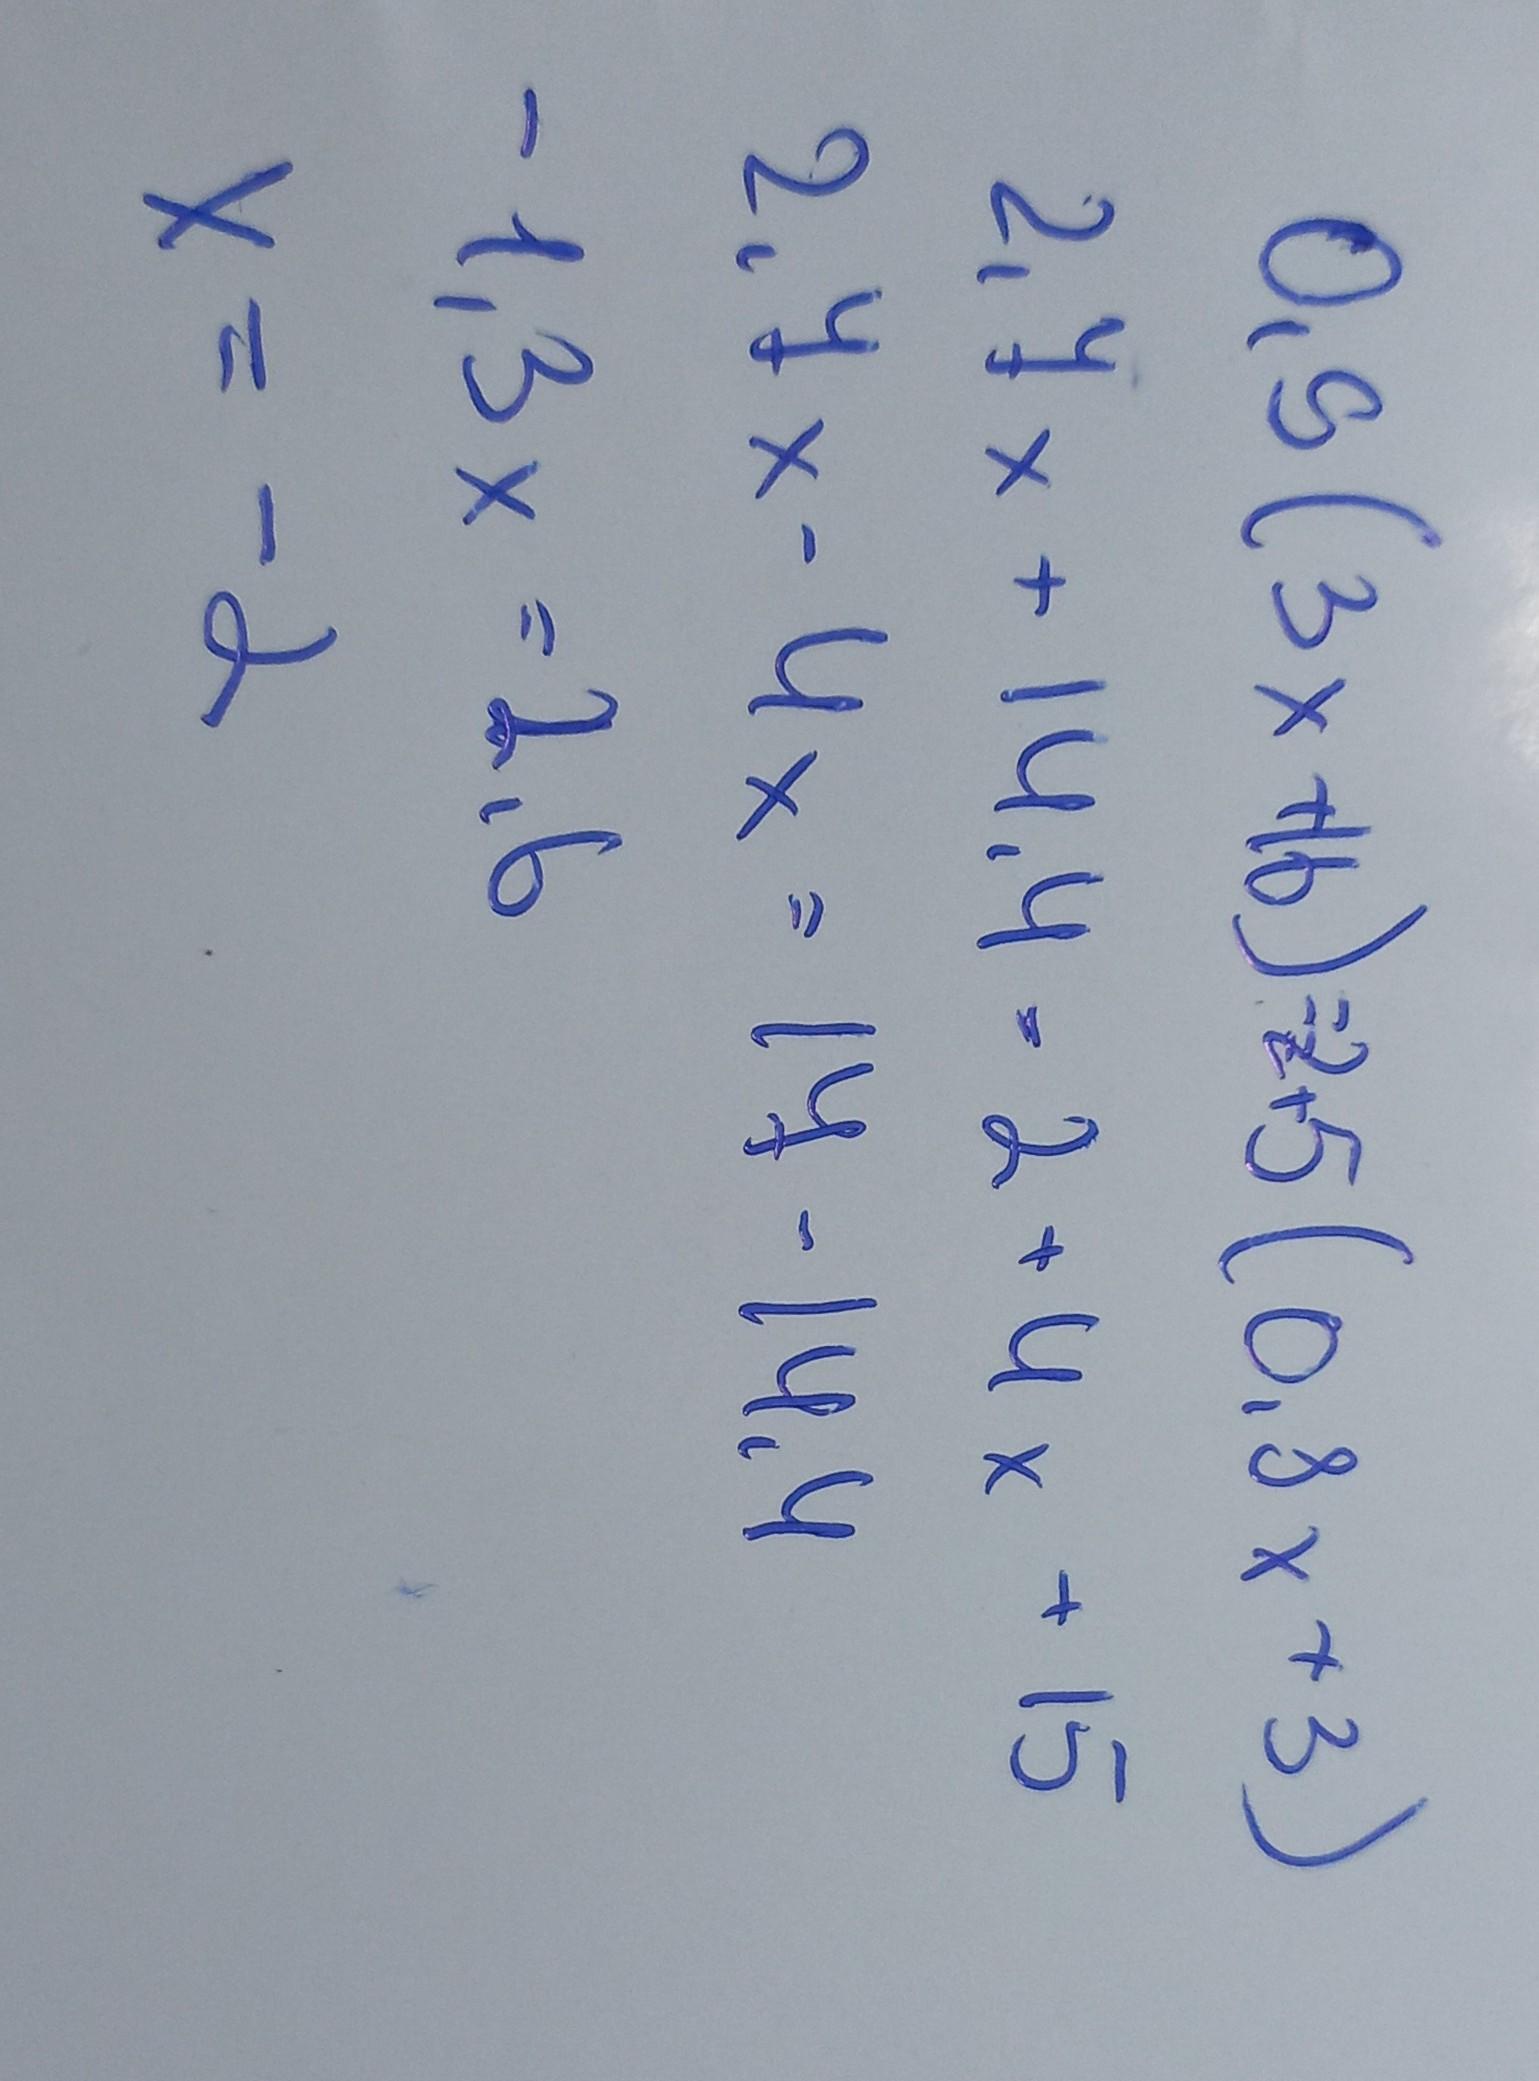 0,9(3x+16)=2+5(0,8x+3)
2,7x+14,4=2+4x+15
2,7x-4x=17-14,4
-1,3x=2,6
x=-2